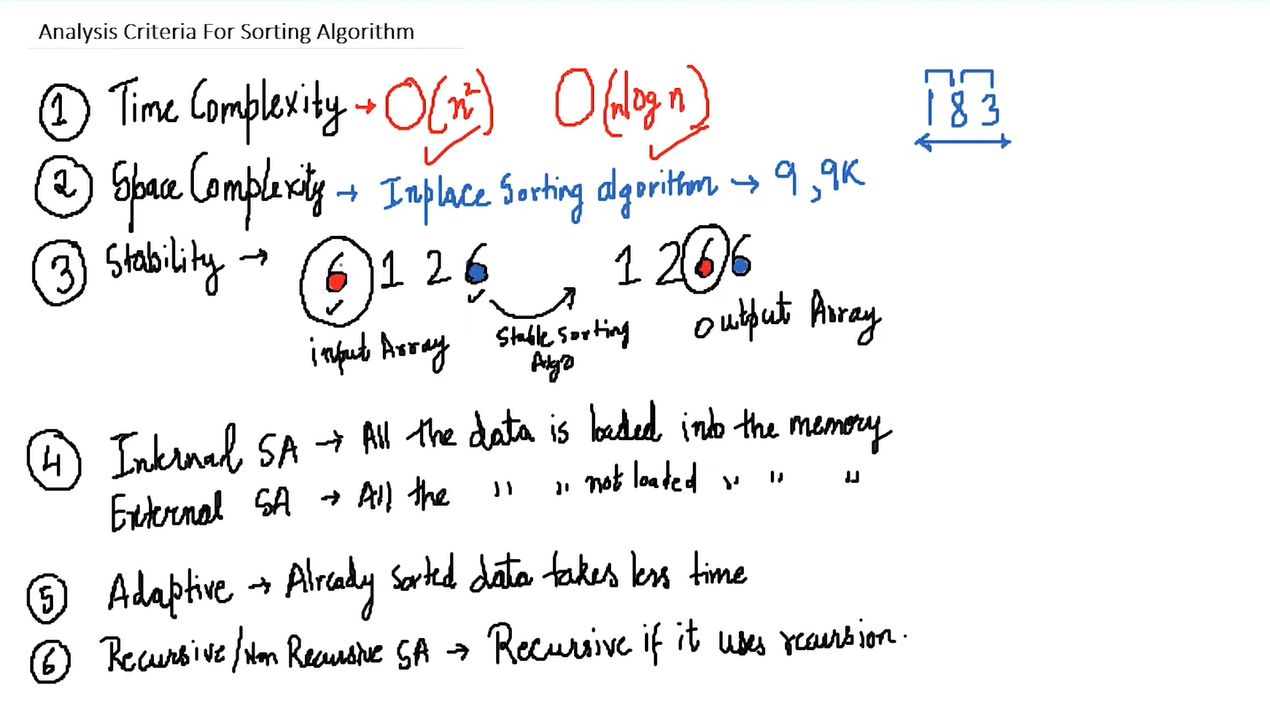 Analysis Criteria For Sorting Algorithm
① Time Complexity → O(n²) O(nlog n) 1 8 3
② Space Complexity → Inplace Sorting algorithm → 9, 9K
③ Stability → 6 1 2 6 1 2 6 6
input Array Stable Sorting Algo output Array
④ Internal SA → All the data is loaded into the memory
External SA → All the " " not loaded " " "
⑤ Adaptive → Already sorted data takes less time
⑥ Recursive/Non Recursive SA → Recursive if it uses recursion.